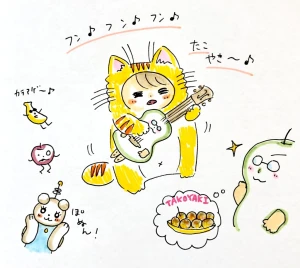 フン♪フン♪フン♪
たこ
やき〜♪
カラアゲ〜♪
TAKOYAKI